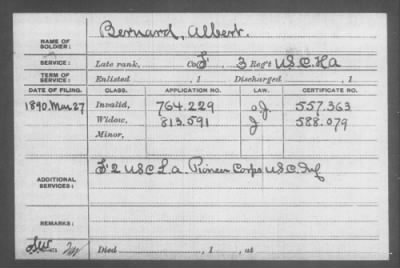 NAME OF SOLDIER: Bernard, Albert.
SERVICE: Late rank, Co. F, 3 Reg't U.S.C.H.A
TERM OF SERVICE: Enlisted , 1 Discharged , 1
DATE OF FILING. CLASS. APPLICATION NO. LAW. CERTIFICATE NO.
1890. Mar. 27 Invalid, 764.229 557.363
Widow, 813.591 588.079
Minor,
ADDITIONAL SERVICES: F 2 U S C L A. Pioneer Corps U.S.C. Inf
REMARKS:
Died , 1 , at